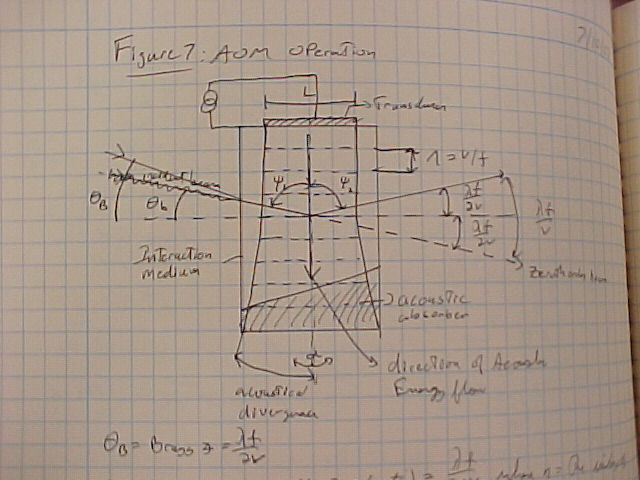 Figure 7: AOM Operation
L
Transducer
Λ = v/f
θB
θb
ψ
ψ
λf
2v
λf
2v
λf
v
Interaction
medium
Zeroth order beam
acoustic
absorber
direction of Acoustic
Energy flow
acoustical
divergence
θB = Bragg = λf/2v
λf
when n =